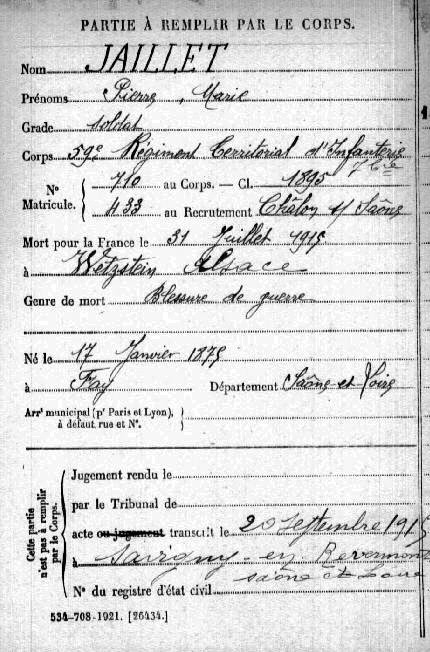 PARTIE À REMPLIR PAR LE CORPS.
Nom JAILLET
Prénoms Pierre, Marie
Grade soldat
Corps 59e Régiment Territorial d'Infanterie
7e Cie
Nº 710 au Corps. — Cl. 1895
Matricule. 433 au Recrutement Châlon s/ Saône
Mort pour la France le 31 Juillet 1915
à Wetzstein Alsace
Genre de mort Blessure de guerre
Né le 17 Janvier 1875
à Fay Département Saône et Loire
Arrt municipal (pr Paris et Lyon),
à défaut rue et Nº.
Cette partie
n'est pas à remplir
par le Corps.
Jugement rendu le
par le Tribunal de
acte ou jugement transcrit le 20 septembre 1915
à Savigny-en Revermont
Saône et Loire
Nº du registre d'état civil
534-708-1921. [26434.]